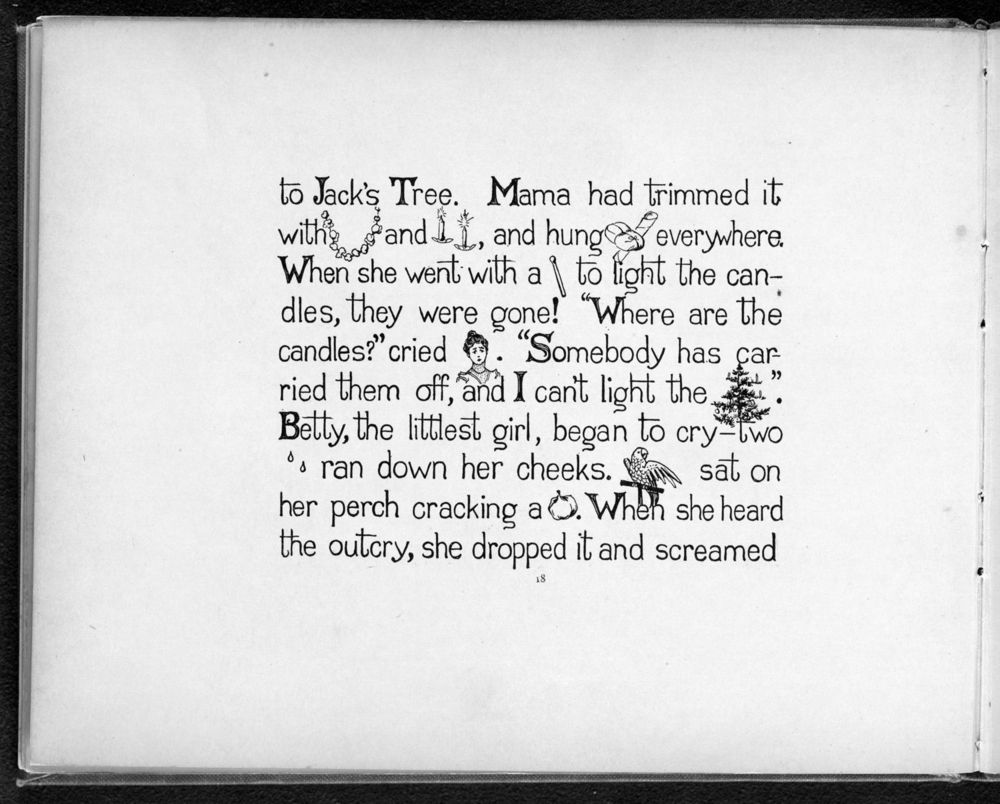 to Jack's Tree. Mama had trimmed it
with and , and hung everywhere.
When she went with a to light the can-
dles, they were gone! "Where are the
candles?" cried . "Somebody has car-
ried them off, and I can't light the ".
Betty, the littlest girl, began to cry-two
ran down her cheeks. sat on
her perch cracking a . When she heard
the outcry, she dropped it and screamed
18